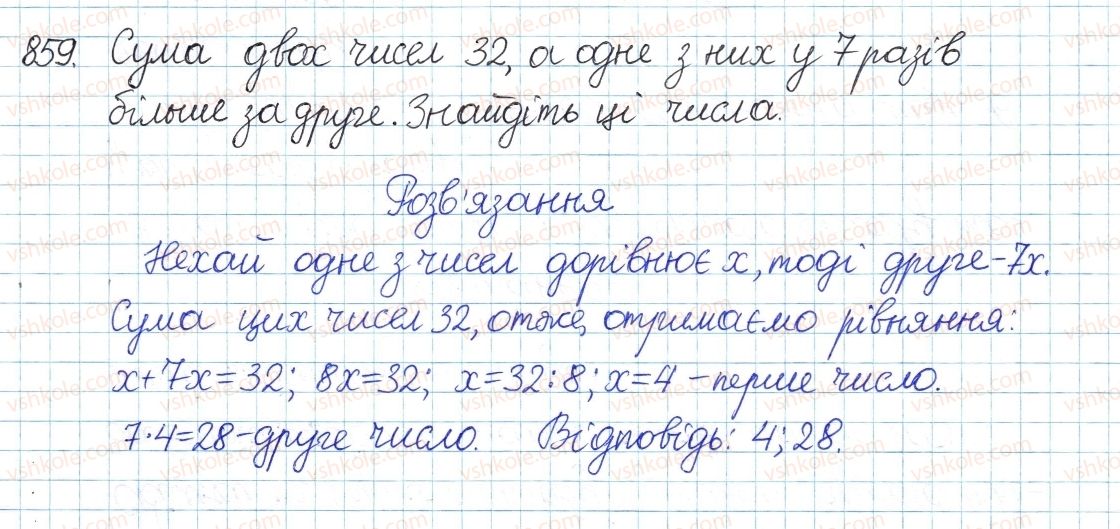 859. Сума двох чисел 32, а одне з них у 7 разів
більше за друге. Знайдіть ці числа.
Розв'язання
Нехай одне з чисел дорівнює х, тоді друге – 7х.
Сума цих чисел 32, отже, отримаємо рівняння:
х+7х=32; 8х=32; х=32:8; х=4 – перше число.
7·4=28 – друге число. Відповідь: 4; 28.